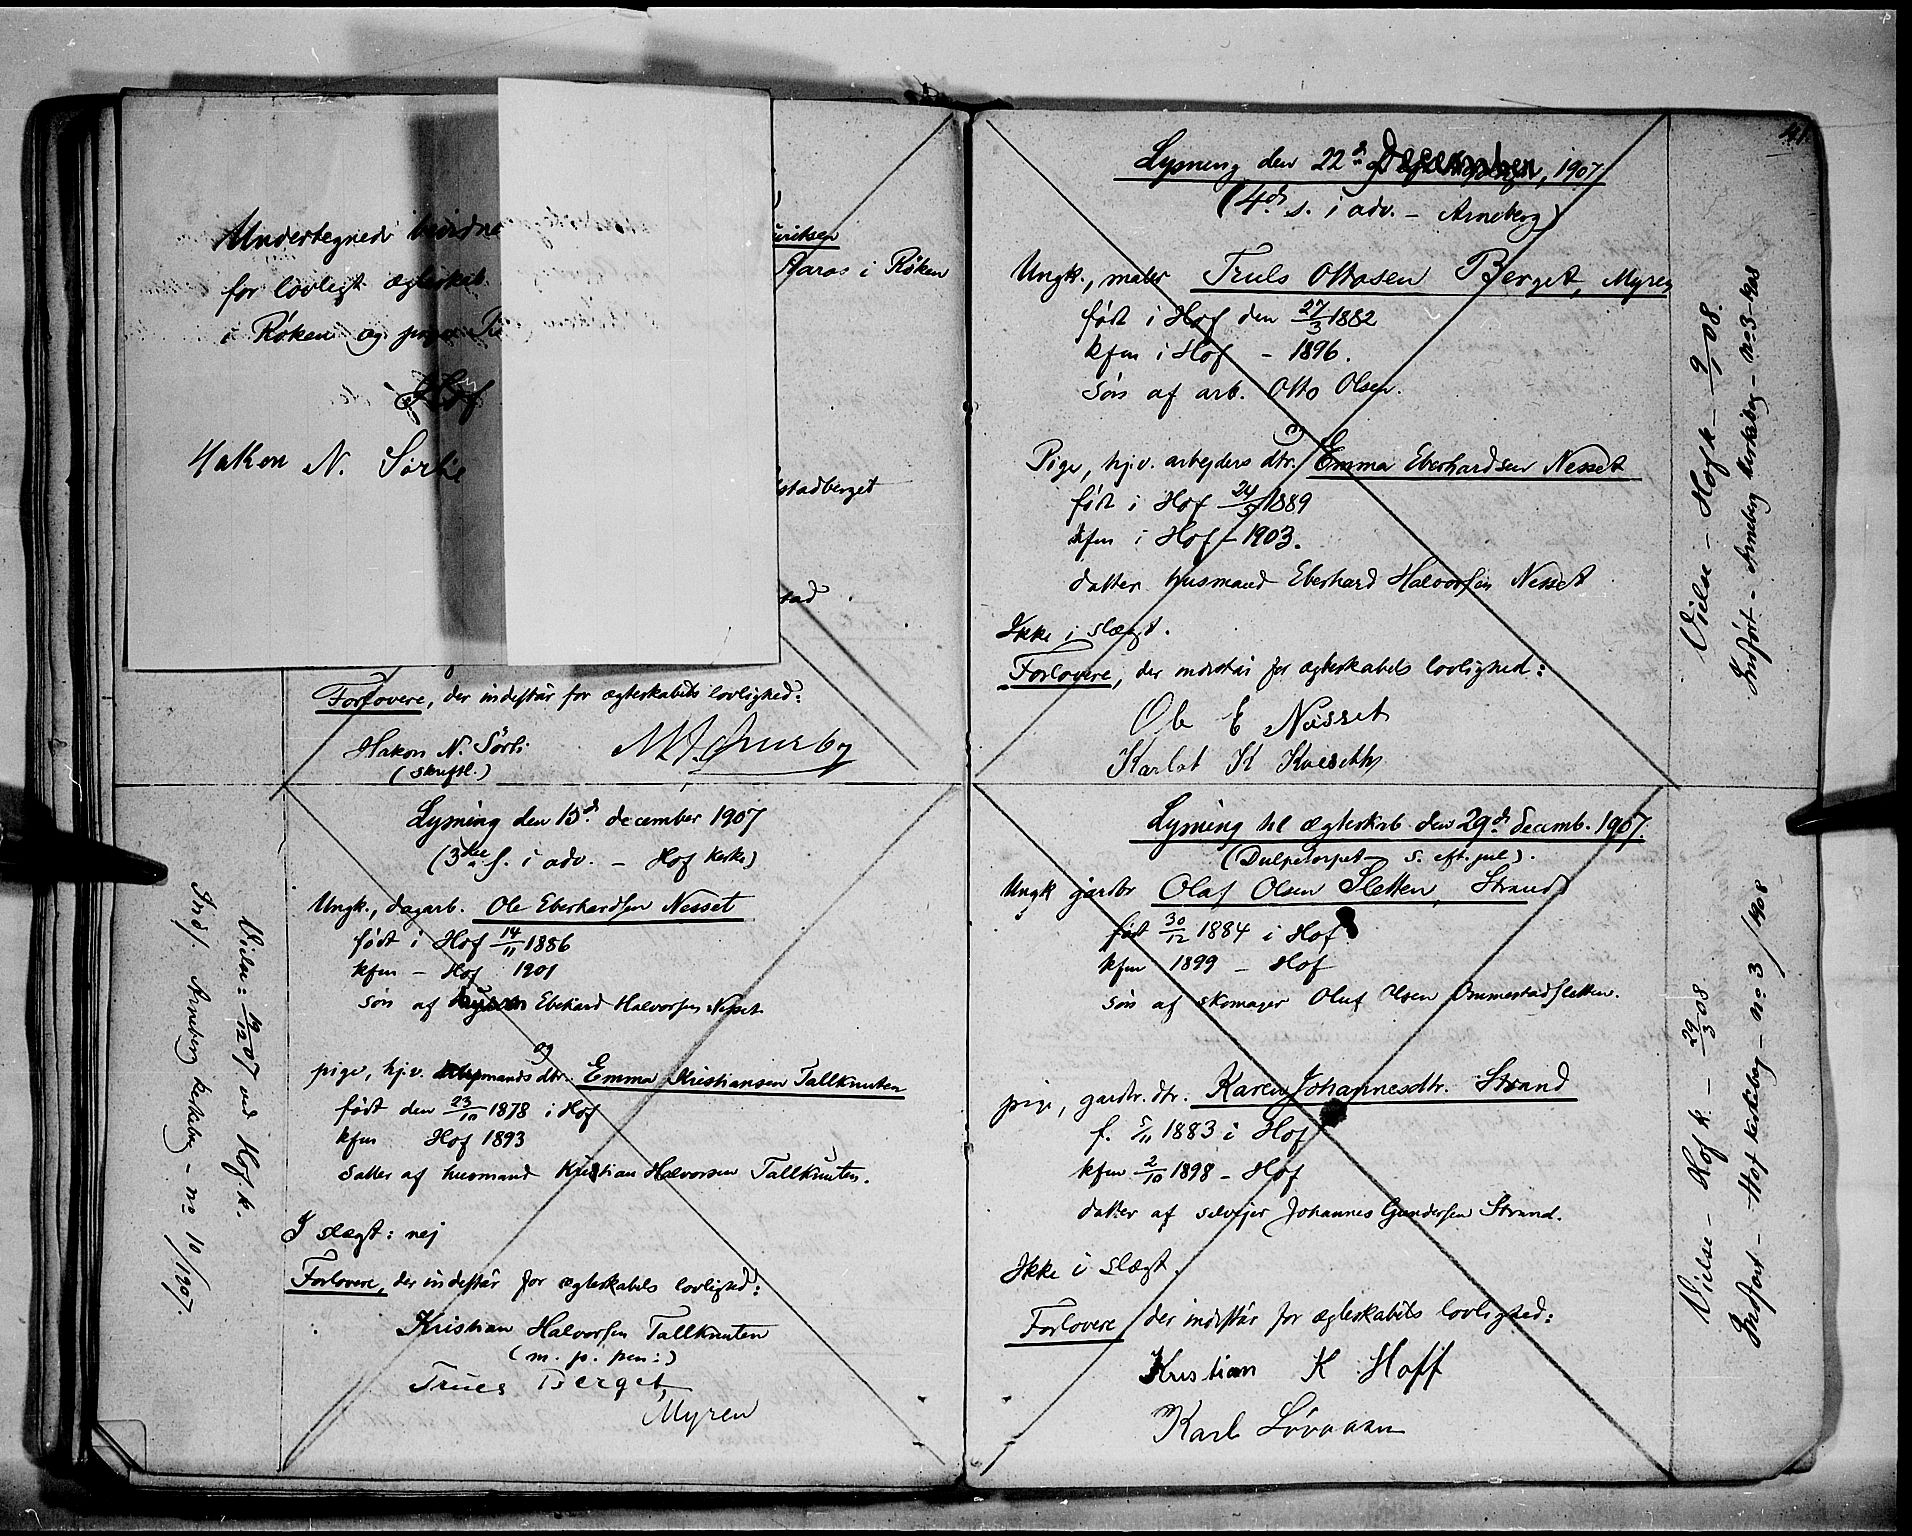 Undertegnede
for lovligt ægteskab
i Røken og pige
Hof
Hakon N. Sørlie
Aaros i Røken
stadberget
stad
Forlovere, der indestår for ægteskabets lovlighed:
Hakon N. Sørli
(skriftl.)
Lysning den 15d. december 1907
(3die s. i adv. – Hof kirke)
Ungk., dagarb. Ole Eberhardsen Nesset
født i Hof 14/11 1886
kfm – Hof 1901
søn af Ebehard Halvorsen Nesset
og
pige, hj.v. husmands dtr. Emma Kristiansen Tallknuten
født den 23/10 1878 i Hof
kfm Hof 1893
datter af husmand Kristian Halvorsen Tallknuten.
I slægt: nej
Forlovere, der indestår for ægteskabets lovlighed:
Kristian Halvorsen Tallknuten
(m. p. pen:)
Truls Berget,
Myren
Vielse: 19/12 07 ved Hof k.
Indf. Arneberg kirkebog – no 10/1907.
41
Lysning den 22d. december, 1907
(4de s. i adv. – Arneberg)
Ungk., maler Truls Ottosen Berget, Myren
født i Hof den 27/3 1882
kfm i Hof – 1896.
søn af arb. Otto Olsen.
og
Pige, hj.v. arbejders dtr. Emma Eberhardsen Nesset
født i Hof 24/5 1889
kfm i Hof – 1903.
datter husmand Eberhard Halvorsen Nesset
Ikke i slægt.
Forlovere, der indestår for ægteskabets lovlighed:
Ole E Nesset
Karlot K Kveseth
Vielse – Hof k – 9/1 08.
Indført – Arneberg kirkebog – no 3 – 1908
Lysning til ægteskab den 29d. decemb. 1907.
(Dulpetorpet – s. eft. jul).
Ungk gardbr Olaf Olsen Sletten, Strand
født 30/12 1884 i Hof
kfm 1899 – Hof
søn af skomager Oluf Olsen Ommestadsletten.
pige, gardbr. dtr. Karen Johannesdtr. Strand
f. 5/11 1883 i Hof
kfm 2/10 1898 – Hof
datter af selvejer Johannes Gundersen Strand.
Ikke i slægt.
Forlovere der indestår for ægteskabets lovlighed:
Kristian K Hoff
Karl Løvaasen
Vielse – Hof k. – 29/3 08
Indført – Hof kirkebog – no 3/1908